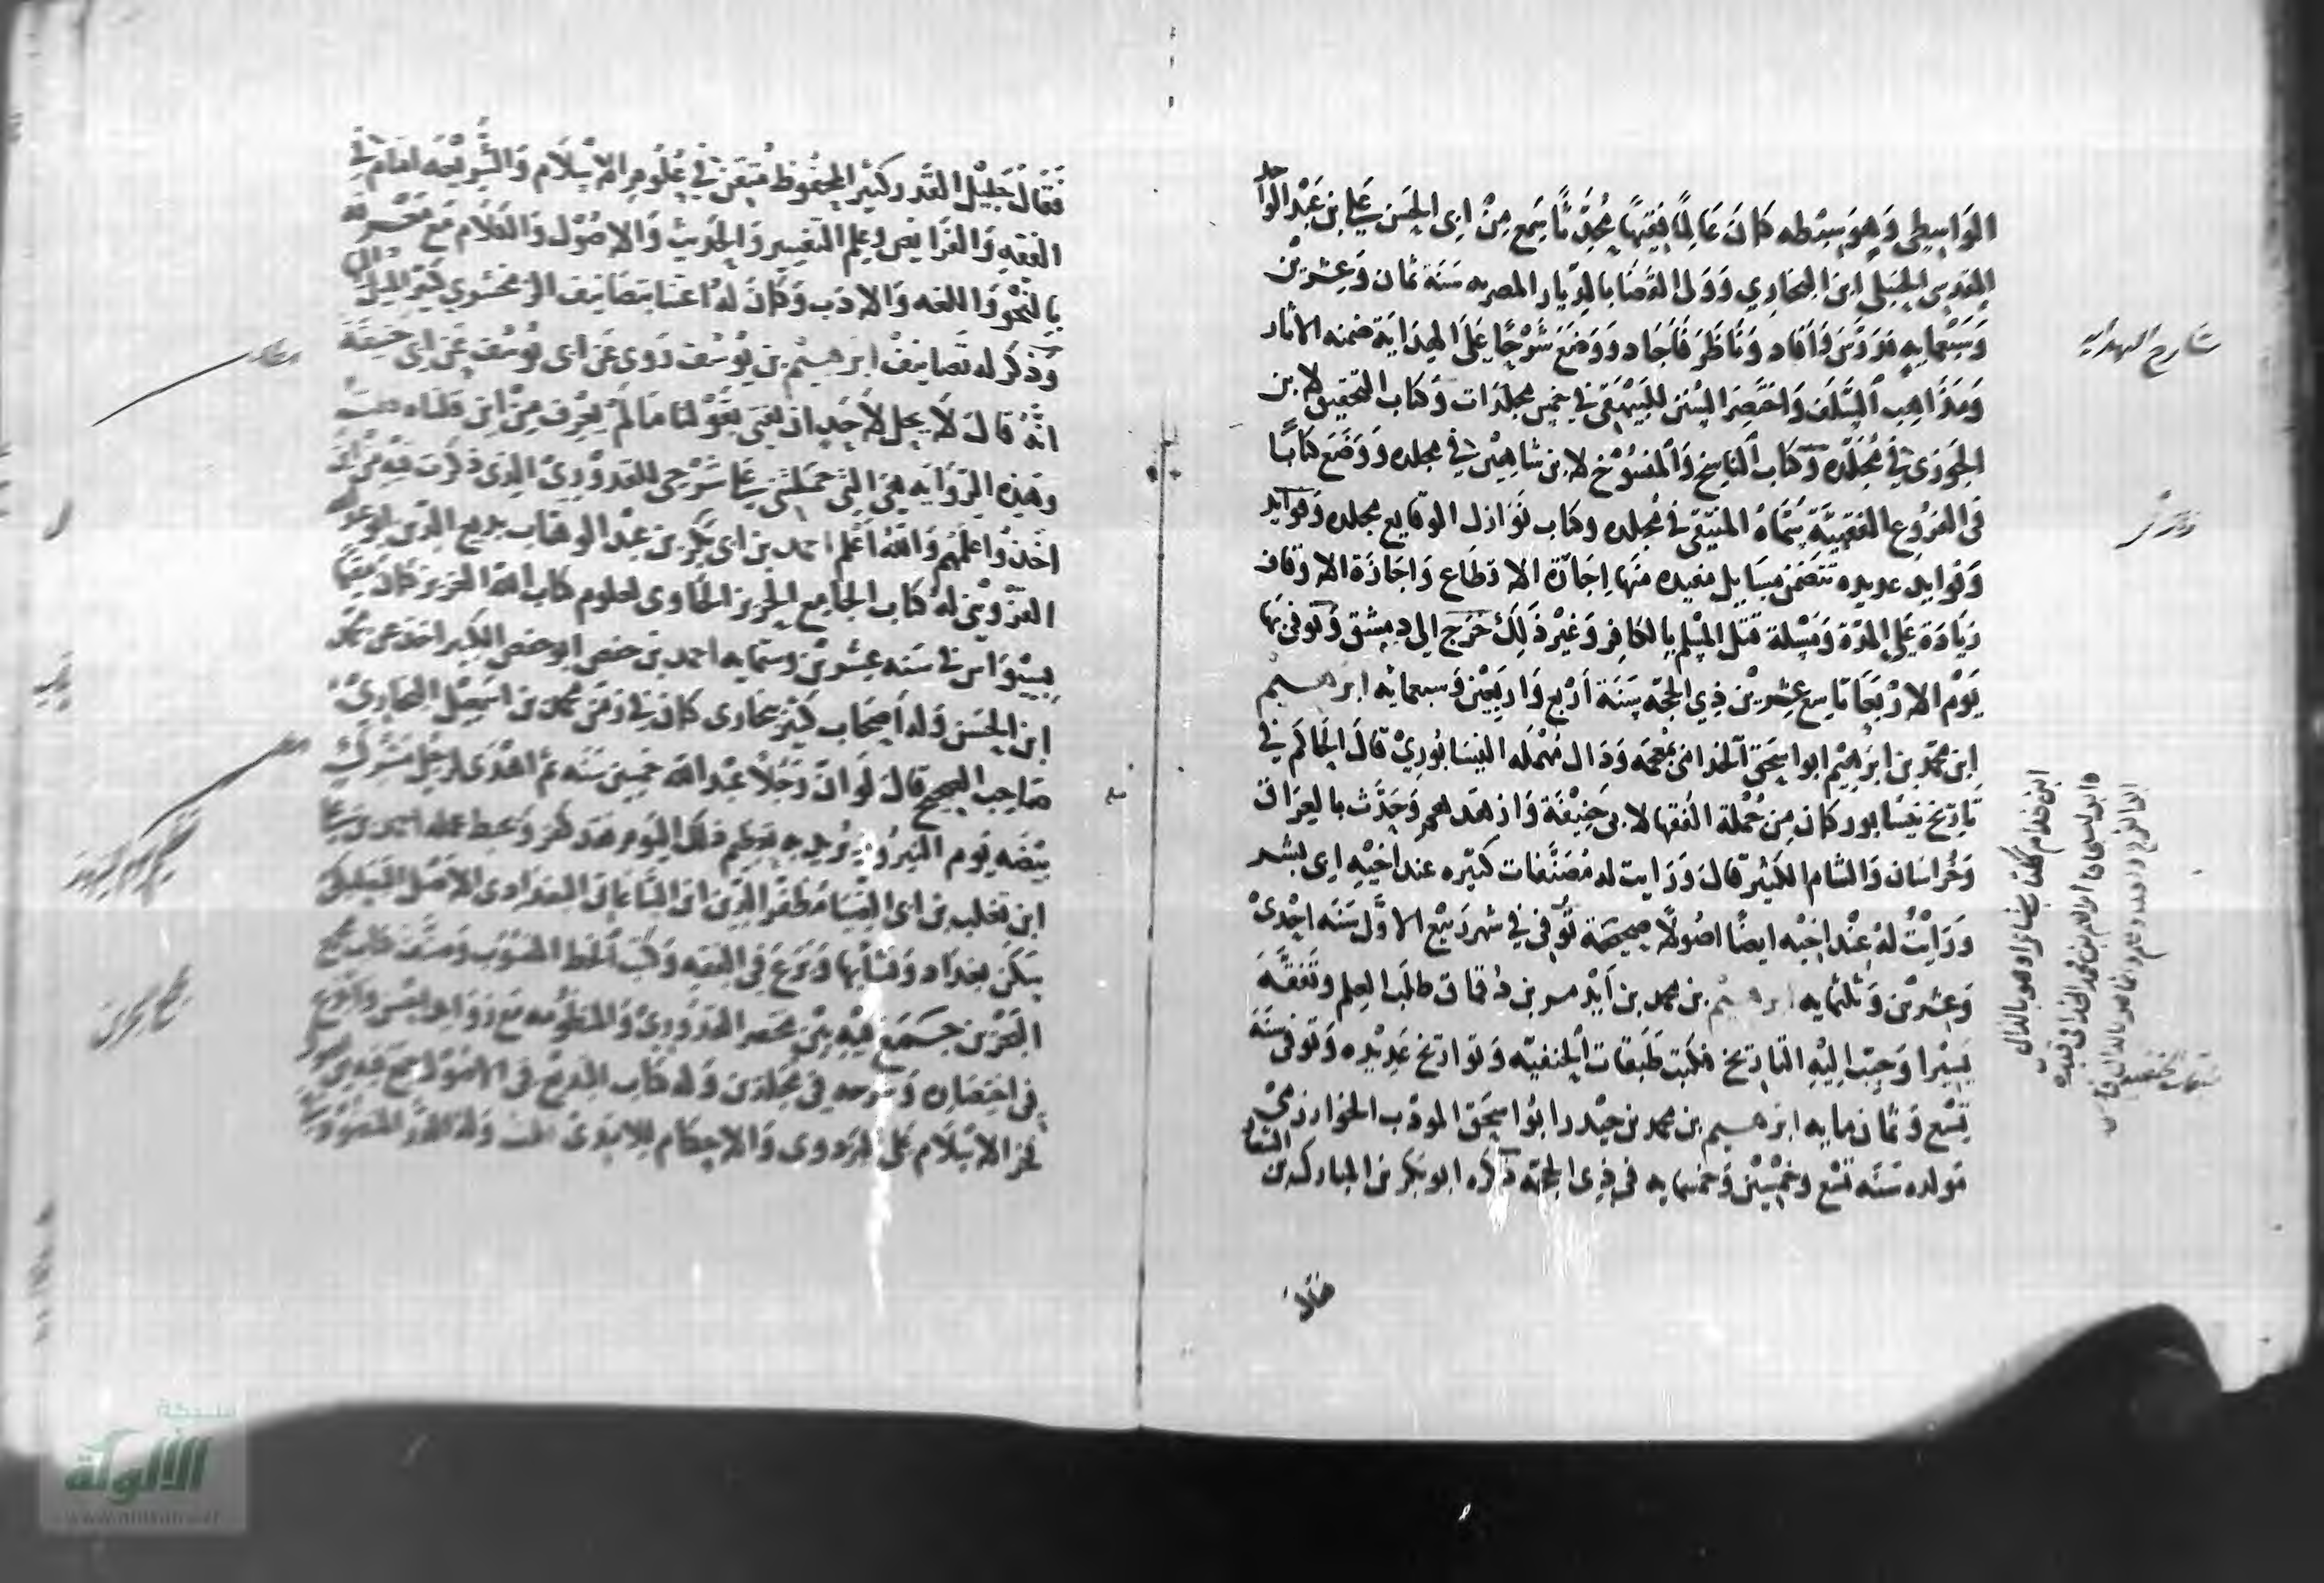 الواسطي وهو سبطه كان عالما فقيها محدثا سمع من ابى الحسن على بن عبد الواحد
المقدسى الحنبلى ابن البخاري وولى القضا بالديار المصريه سنة ثمان وعشرين
وسبعمايه فدرس وافاد وناظر فاجاد ووضع شرحا على الهداية ضمنه الاثار
ومذاهب السلف واختصر السنن للبيهقى في خمس مجلدات وكتاب التحقيق لابن
الجوزى في مجلده وكتاب الناسخ والمنسوخ لابن شاهين في مجلده ووضع كتابا
فى الفروع الفقهيّة سماه المنتقى في مجلده وكتاب نوازل الوقايع مجلده وفوايد
وفوايد عديده تتضمن مسايل مفيده منها اجازة الاقطاع واجازة الاوقاف
زيادة على المدة ومسلة قتل المسلم بالكافر وغير ذلك خرج الى دمشق وتوفى بها
يوم الاربعا تاسع عشرين ذي الحجه سنة اربع واربعين وسبعمايه ابرهيم
ابن محمد بن ابرهيم ابو اسحق الخذامى بمعجمه وذال مهمله النيسابوري قال الحاكم في
تاريخ نيسابور كان من جملة الفقها لابى حنيفة وازهدهم وحدث بالعراق
وخراسان والشام الكثير قال ورايت له مصنفات كثيره عند اخيه ابى بشر
ورايت له عند اخيه ايضا اصولا صحيحة توفى في شهر ربيع الاول سنه احدى
وعشرين وثلثمايه ابرهيم بن محمد بن ايدمر بن دقماق طلب العلم وتفقه
يسيرا وحبب اليه التاريخ فكتب طبقات الحنفيه وتواريخ عديده وتوفى سنة
تسع وثمان مايه ابرهيم بن محمد بن حيدر ابو اسحق المودب الخوارزمى
مولده سنه تسع وخمسين وخمسمايه فى ذى الحجة ذكره ابو بكر بن المبارك بن الشعار
فقال
شارح الهدايه
طبقات الحنفيه
فقال جليل القدر كثير المحفوظ متفنن في علوم الاسلام والشريعه امام فى
الفقه والفرايض وعلم التفسير والحديث والاصول والكلام مع معرفة
بالنحو واللغه والادب وكان له اعتنا بتصانيف الزمخشري كثير الميل اليها
وذكر له تصانيف ابرهيم بن يوسف روى عن ابى يوسف عن ابى حنيفة
انه قال لا يحل لاحد ان يفتى بقولنا ما لم يعرف من اين قلناه
وهذه الرواية هى التى حملتنى على شرحى للقدوري الذى ذكرت فيه من اين
اخذوا علمهم والله اعلم احمد بن ابى بكر بن عبد الوهاب بديع الدين ابو عبد الله
القزويني له كتاب الجامع الحريز الحاوى لعلوم كتاب الله العزيز كان مقيما
بسيواس في سنه عشرين وستمايه احمد بن حفص ابو حفص الكبير اخذ عن محمد
ابن الحسن وله اصحاب كثير ببخارى كان في زمن محمد بن اسمعيل البخاري
صاحب الصحيح قال لو ان رجلا عبد الله خمسين سنه ثم اهدى لرجل مشرك
بيضه يوم النيروز يريد به تعظيم ذلك اليوم فقد كفر وحبط عمله احمد بن على
ابن تغلب بن ابى الضيا مظفر الدين ابن الساعاتى البغدادى الاصل البعلبكى
سكن بغداد ونشا بها وبرع فى الفقه وكتب الخط المنسوب وصنف كتاب مجمع
البحرين جمع فيه بين مختصر القدوري والمنظومه مع زوايد نفيسه وابدع
فى اختصاره وشرحه فى مجلدين وله كتاب البديع فى الاصول جمع فيه بين اصول
فخر الاسلام على البزدوى والاحكام للامدى وله الدر المنضود
شبكة
الألوكة